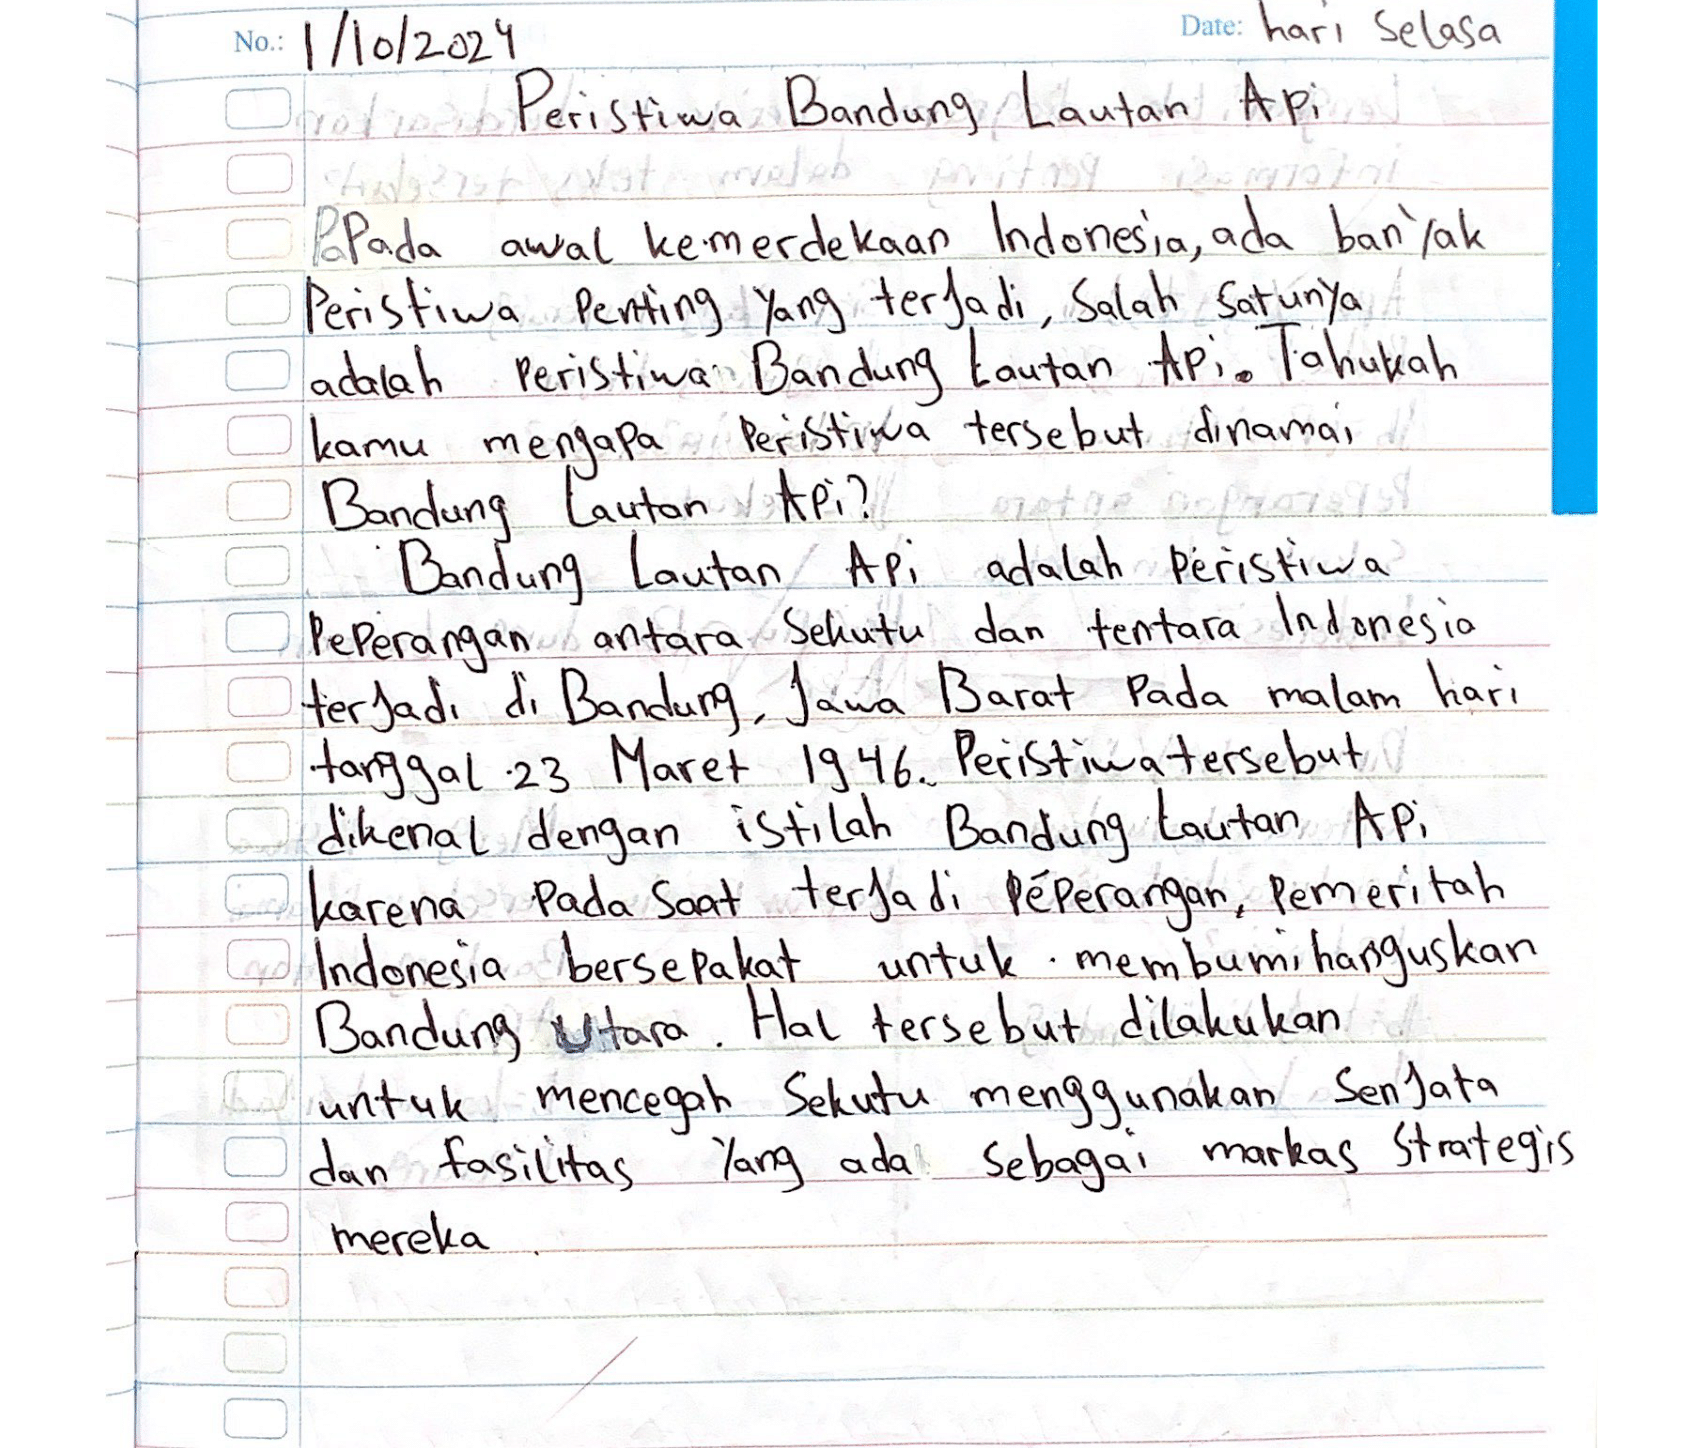 No.: 1/10/2024 Date: hari Selasa
Peristiwa Bandung Lautan Api
Pada awal kemerdekaan Indonesia, ada banyak
Peristiwa Penting yang terjadi, Salah Satunya
adalah Peristiwa Bandung Lautan Api. Tahukah
kamu mengapa Peristiwa tersebut dinamai
Bandung Lautan Api?
Bandung Lautan Api adalah Peristiwa
Peperangan antara Sekutu dan tentara Indonesia
terjadi di Bandung, Jawa Barat Pada malam hari
tanggal 23 Maret 1946. Peristiwa tersebut
dikenal dengan istilah Bandung Lautan Api
karena Pada Saat terjadi Peperangan, Pemeritah
Indonesia bersepakat untuk membumihanguskan
Bandung Utara. Hal tersebut dilakukan
untuk mencegah Sekutu menggunakan Senjata
dan fasilitas Yang ada Sebagai markas Strategis
mereka.